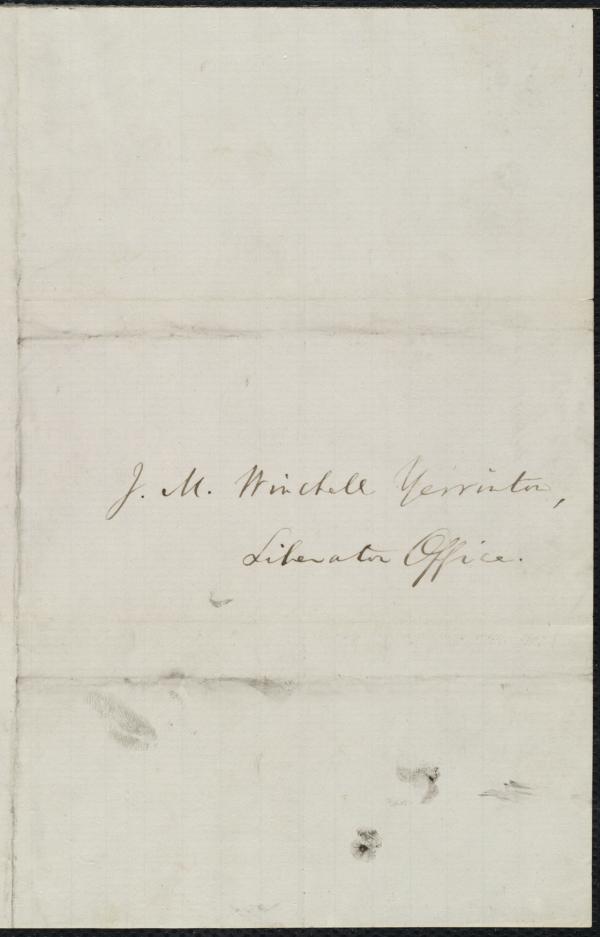 J. M. Winchell Yerrinton,
Liberator Office.